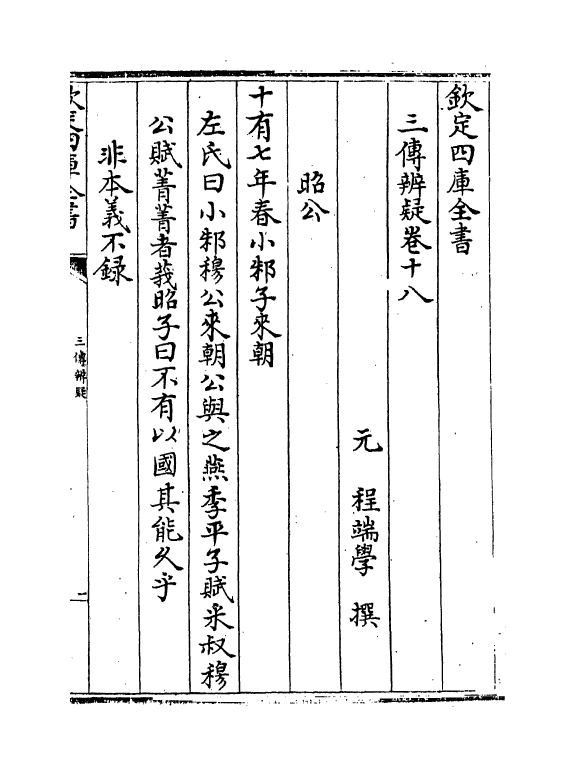 欽定四庫全書
三傳辨疑卷十八
元 程端學 撰
昭公
十有七年春小邾子來朝
左氏曰小邾穆公來朝公與之燕季平子賦采叔穆
公賦菁菁者莪昭子曰不有以國其能久乎
非本義不録
欽定四庫全書
三傳辨疑
二